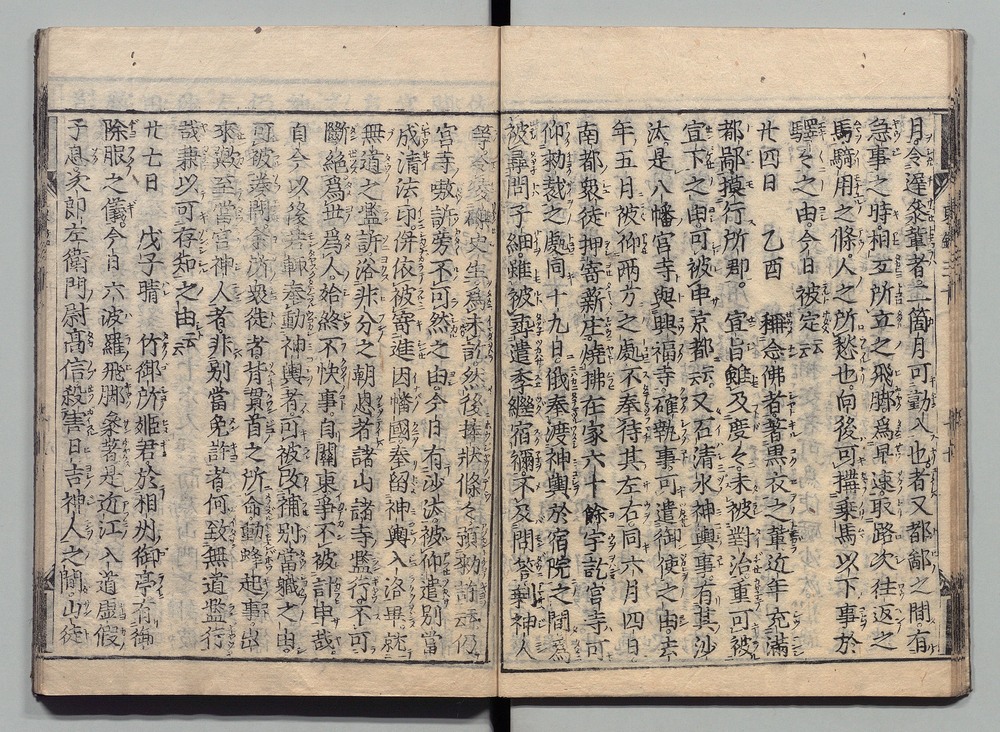 月。令遅參輩者二箇月可勤入也者又都鄙之間有
急事之時。相互所立之飛脚爲早速取路次往返之
馬騎用之條。人之所愁也。向後可搆乗馬以下事於
驛々之由。今日被定云云
廿四日　乙酉　稱念佛者著黒衣之輩近年充滿
都鄙横行所部。宣旨雖及度々未被對治重可被
宣下之由可被申京都云云又石清水神輿事有其沙
汰是八幡宮寺與興福寺確執事可遣御使之由去
年五日被仰兩方之處不奉待其左右同六月四日
南都衆徒押寄薪庄。燒拂在家六十餘宇訖宮寺可
仰勅裁之處同十九日。俄奉渡神輿於宿院之間爲
被尋問子細雖被遣季繼宿禰不及問答剩神人
等令凌轢史生爲未訴然後捧狀條々勅許云云仍
宮寺嗷訴旁不可然之由。今日有沙汰被仰遣別當
成清法印。併依被寄進因幡國奉留神輿入洛畢就
無道之濫訴浴非分之朝恩者諸山諸寺濫行不可
斷絶爲世爲人。始終不快事自關東爭不被計申哉
自今以後若輙奉動神輿者可被改補別當職之由。
可被 所衆徒者背貫首之所命動蜂起事出
來歟至當宮神人者非別當免許者何致無道濫行
哉兼以可存知之由云云
廿七日　戊子晴　竹御所姫君於相州御亭有御
除服之儀。今日六波羅飛脚參著是近江入道虚假
子息次郎左衛門尉高信殺害日吉神人之間山徒